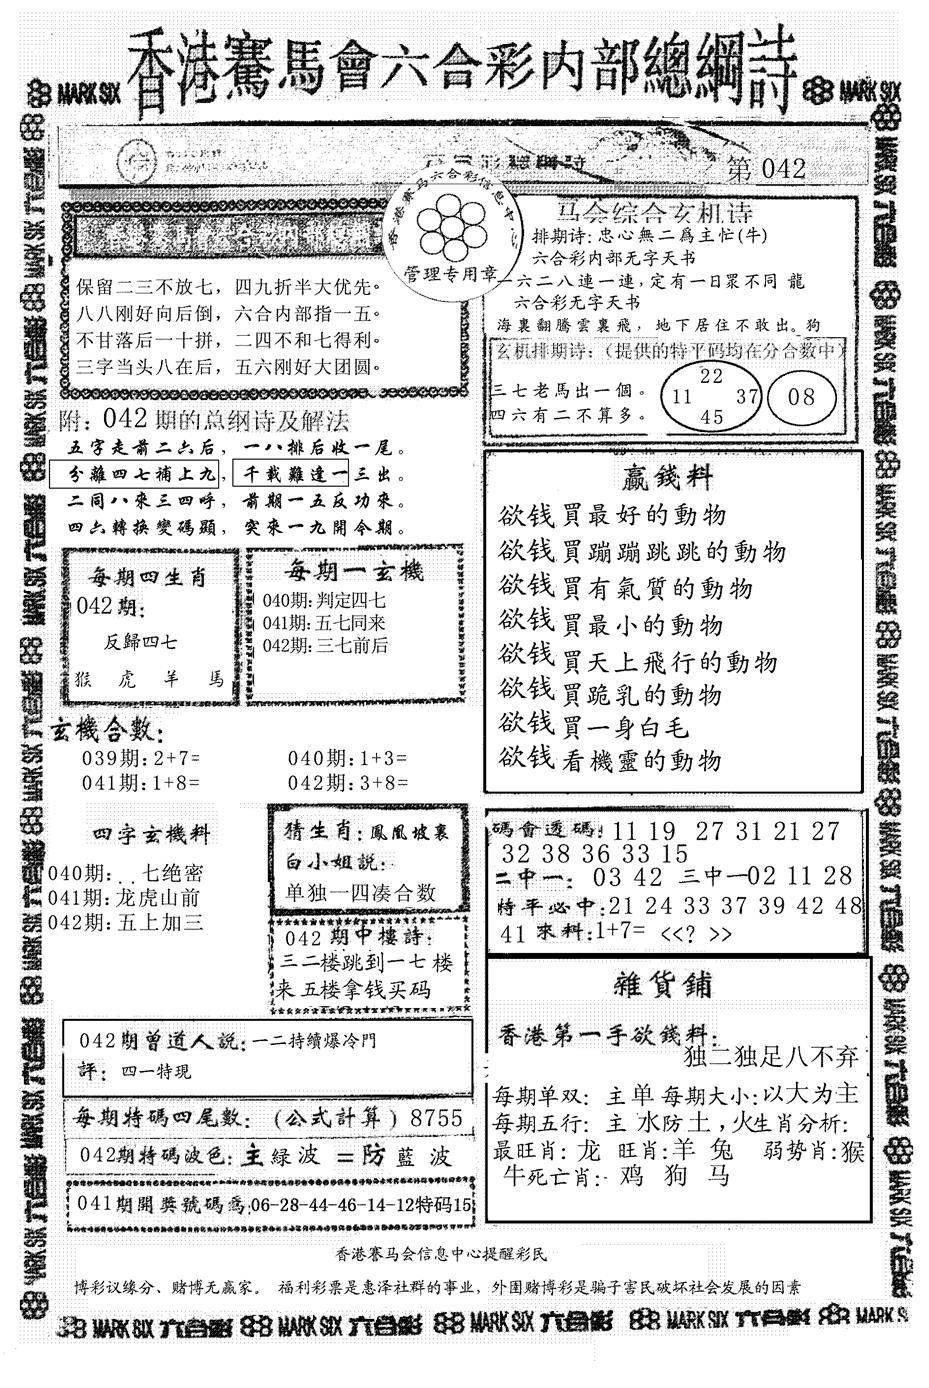 香港賽馬會六合彩内部總綱詩
MARK SIX
MARK SIX
第 042
香港赛马六合彩信息中
管理专用章
保留二三不放七，四九折半大优先。
八八刚好向后倒，六合内部指一五。
不甘落后一十拼，二四不和七得利。
三字当头八在后，五六刚好大团圆。
附：042 期的总纲诗及解法
五字走前二六后，一八排后收一尾。
分離四七補上九，千載難逢一三出。
二同八來三四呼，前期一五反功來。
四六轉换變碼顯，突來一九開今期。
每期四生肖
042 期：
反歸四七
猴 虎 羊 馬
每期一玄機
040期：判定四七
041期：五七同来
042期：三七前后
玄機合數：
039期：2+7= 040期：1+3=
041期：1+8= 042期：3+8=
四字玄機料
040期：..七绝密
041期：龙虎山前
042期：五上加三
猜生肖：鳳凰坡裏
白小姐説：
单独一四凑合数
042 期中樓詩：
三二楼跳到一七 楼
来 五楼拿钱买码
042期曾道人説：一二持續爆冷門
評：四一特現
每期特碼四尾數：(公式計算) 8755
042期特碼波色：主 緑 波 =防 藍 波
041期開獎號碼爲：06-28-44-46-14-12特码15
马会综合玄机诗
排期诗：忠心無二爲主忙(牛)
六合彩内部无字天书
一六二八連一連，定有一日眾不同 龍
六合彩无字天书
海裏翻騰雲裏飛，地下居住不敢出。狗
玄机排期诗：（提供的特平码均在分合数中）
三七老馬出一個。
四六有二不算多。
22
11 37
45
08
赢錢料
欲钱買最好的動物
欲钱買蹦蹦跳跳的動物
欲钱買有氣質的動物
欲钱買最小的動物
欲钱買天上飛行的動物
欲钱買跪乳的動物
欲钱買一身白毛
欲钱看機靈的動物
碼會透碼：11 19 27 31 21 27
32 38 36 33 15
二中一：03 42 三中一02 11 28
特平必中：21 24 33 37 39 42 48
41 來料：1+7= <<? >>
雜貨鋪
香港第一手欲錢料：
独二独足八不弃
每期单双：主单 每期大小：以大为主
每期五行：主 水防土，火生肖分析：
最旺肖：龙 旺肖：羊 兔 弱势肖：猴
牛死亡肖：鸡 狗 马
香港赛马会信息中心提醒彩民
博彩议缘分、赌博无赢家。 福利彩票是惠泽社群的事业，外围赌博彩是骗子害民破坏社会发展的因素
MARK SIX 六合彩 MARK SIX 六合彩 MARK SIX 六合彩 MARK SIX 六合彩 MARK S